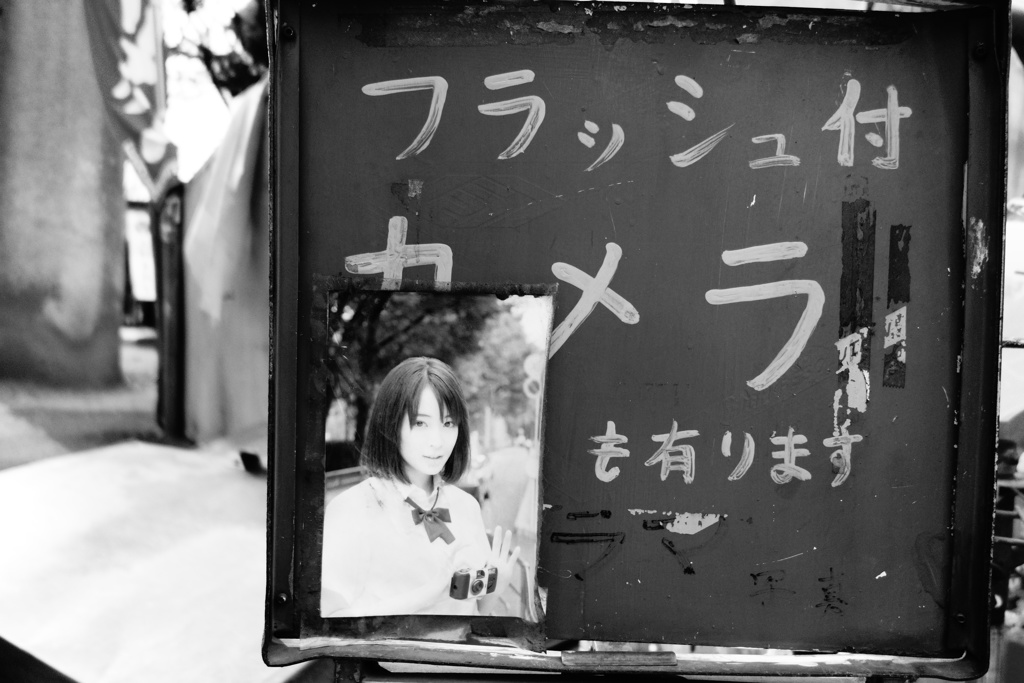 フラッシュ付
カメラ
も有ります